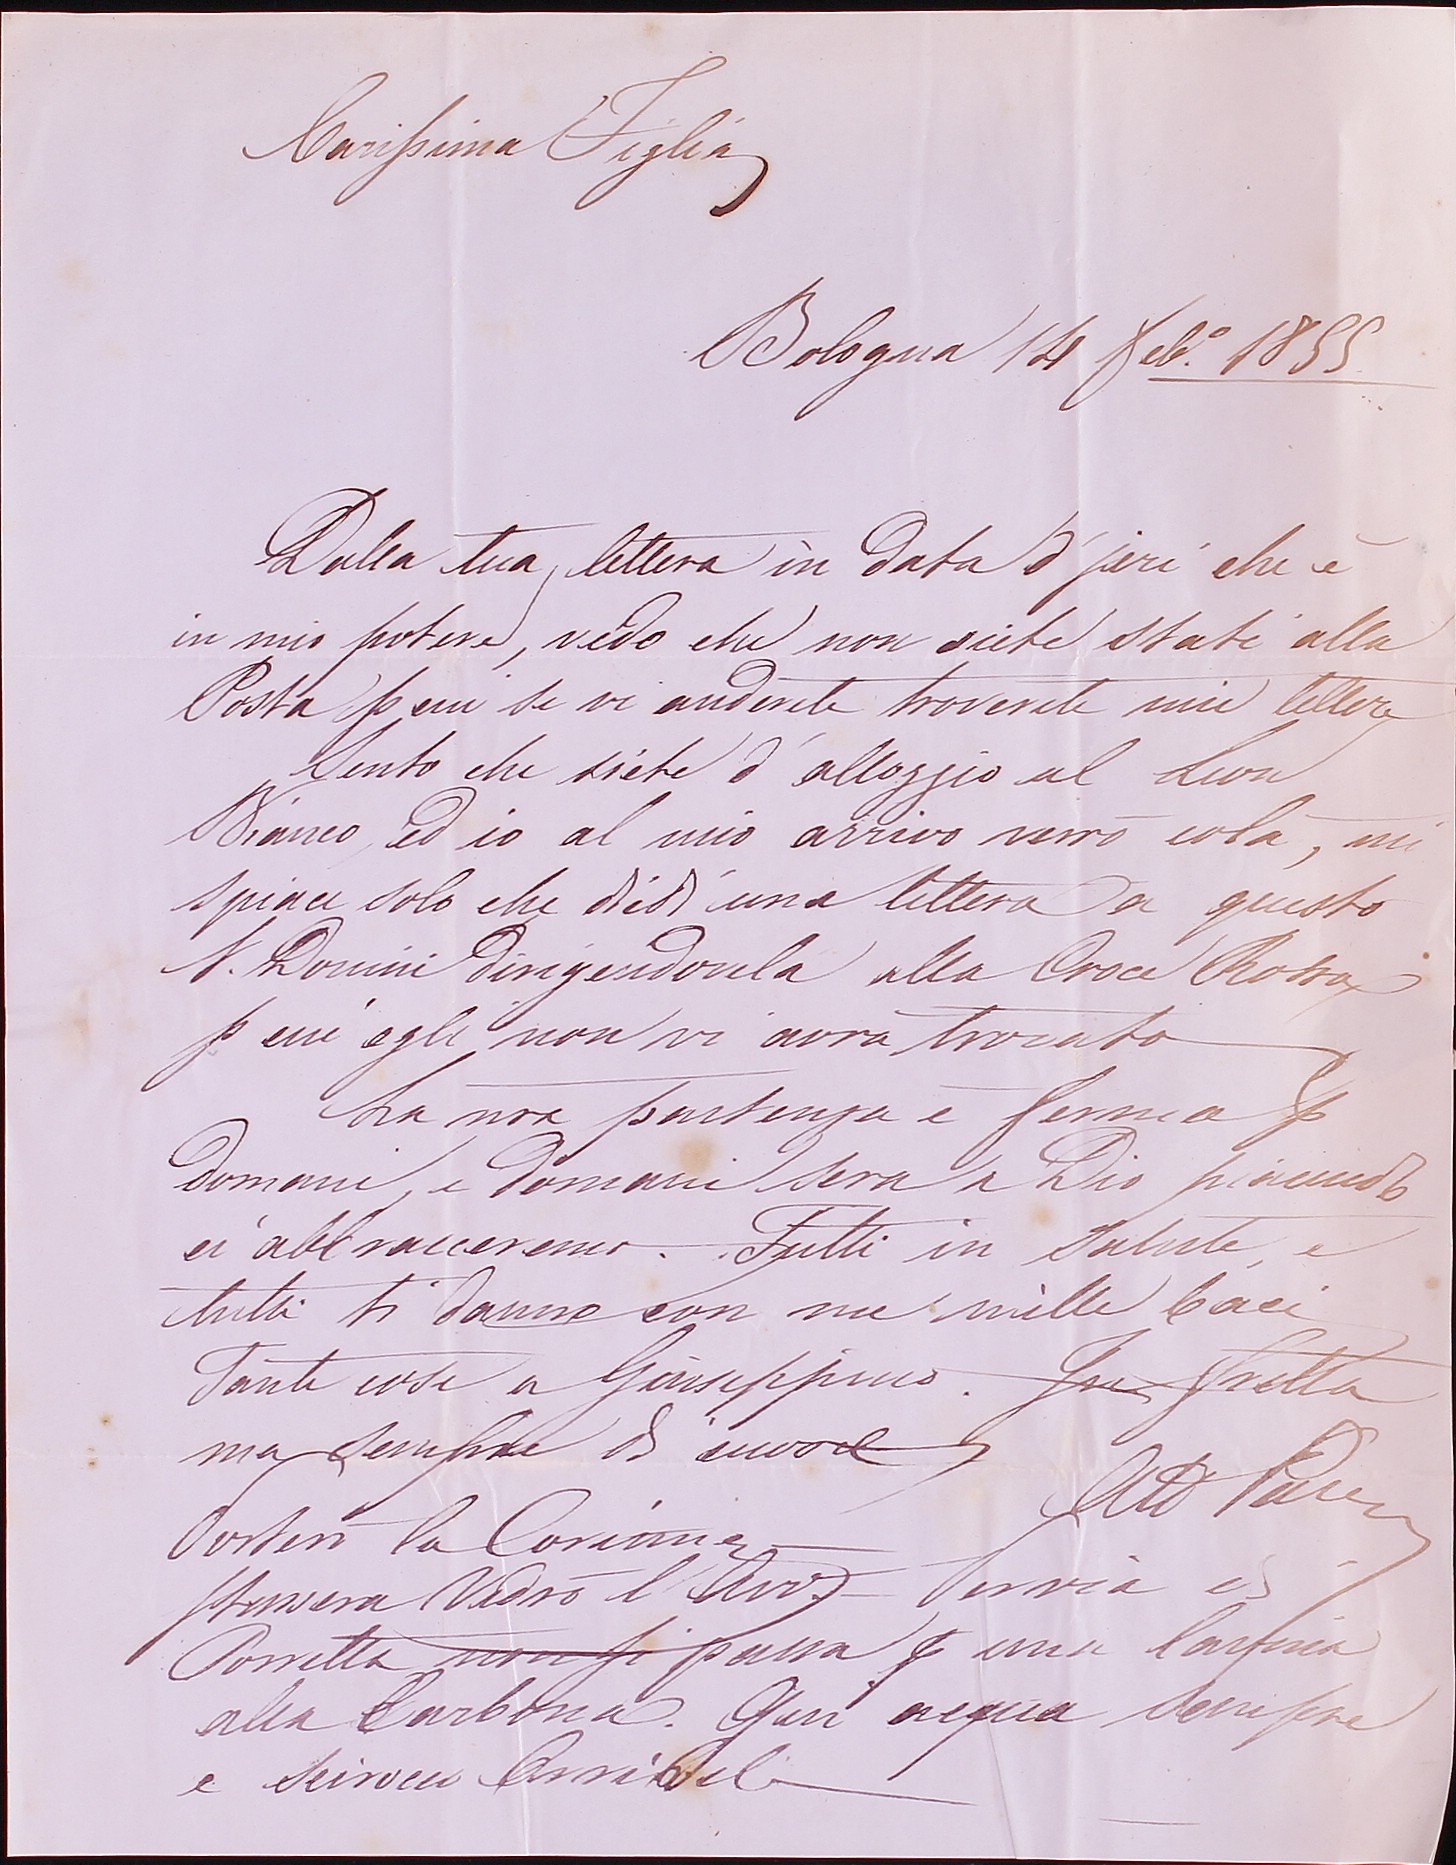 Carissima Figlia
Bologna 14 Feb.° 1855
Dalla tua lettera in data d'jeri che è
in mio potere, vedo che non siete stati alla
Posta p cui se vi anderete troverete mie lettere
Sento che siete d'alloggio al Leon
Bianco, ed io al mio arrivo verrò colà, mi
spiace solo che diedi una lettera a questo
S. Donini dirigendovela alla Croce Rossa
p cui egli non vi avrà trovato
La nra partenza è ferma p
domani, e domani sera a Dio piacendo
ci abbracceremo. Tutti in salute, e
tutti ti danno con me mille baci
Tante cose a Giuseppino. In fretta
ma sempre di cuore
Aff Padre
Porterò la
Stassera vedrò l'Avv. La via di
Porretta non si passa p una
alla Carbona. Qui acqua sempre
e scirocco orribile